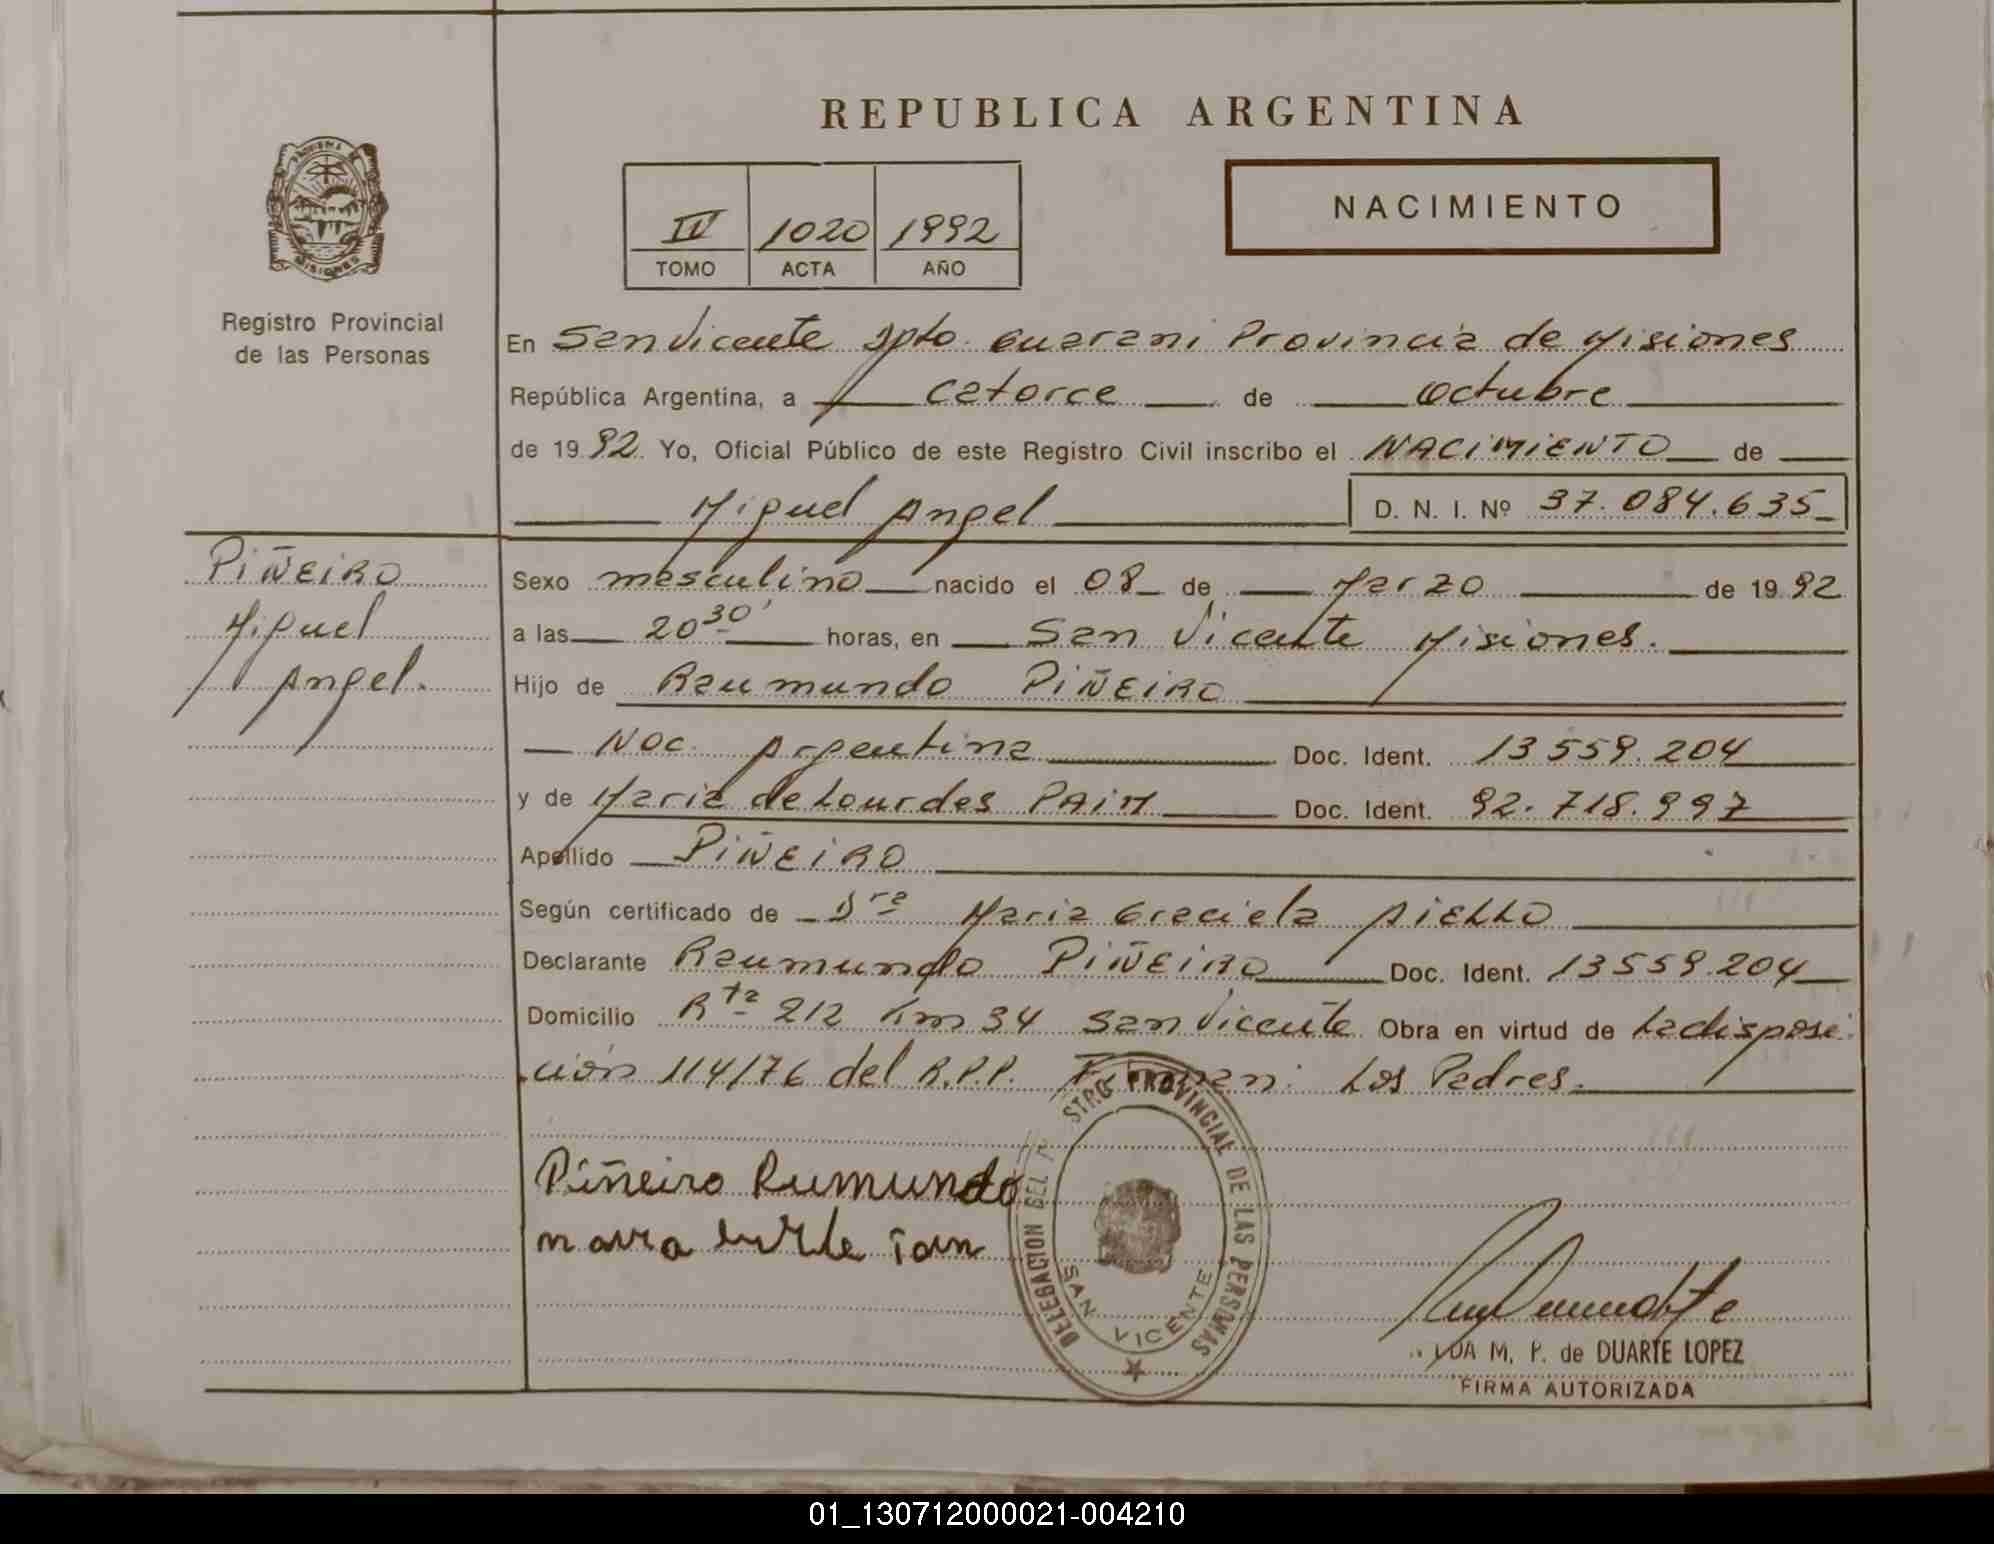 REPUBLICA ARGENTINA
PROVINCIA DE
MISIONES
Registro Provincial
de las Personas
IV 1020 1992
TOMO ACTA AÑO
NACIMIENTO
En San Vicente Dpto. Guarani Provincia de Misiones
República Argentina, a catorce de octubre
de 1992. Yo, Oficial Público de este Registro Civil inscribo el NACIMIENTO de
Miguel Angel D. N. I. Nº 37.084.635
PIÑEIRO
Miguel
Angel.
Sexo masculino nacido el 08 de Marzo de 1992
a las 20 30' horas, en San Vicente Misiones.
Hijo de Raumundo PIÑEIRO
Nac. Argentina Doc. Ident. 13559.204
y de Maria de Lourdes PAIM Doc. Ident. 92.718.997
Apellido PIÑEIRO
Según certificado de Dra Maria Graciela AIELLO
Declarante Raumundo PIÑEIRO Doc. Ident. 13559.204
Domicilio Rta 212 Km 34 San Vicente Obra en virtud de La disposi
ción 114/76 del R.P.P. Firman: Los Padres.
Piñeiro Rumundo
DELEGACION DEL STRO PROVINCIAL DE LAS PERSONAS
SAN VICENTE
M. P. de DUARTE LOPEZ
FIRMA AUTORIZADA
01_130712000021-004210